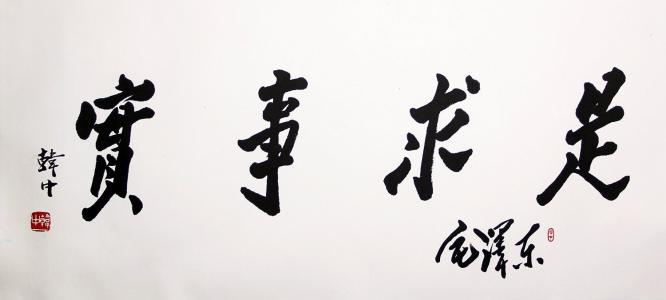 實事求是
毛澤东
韓中
韓中